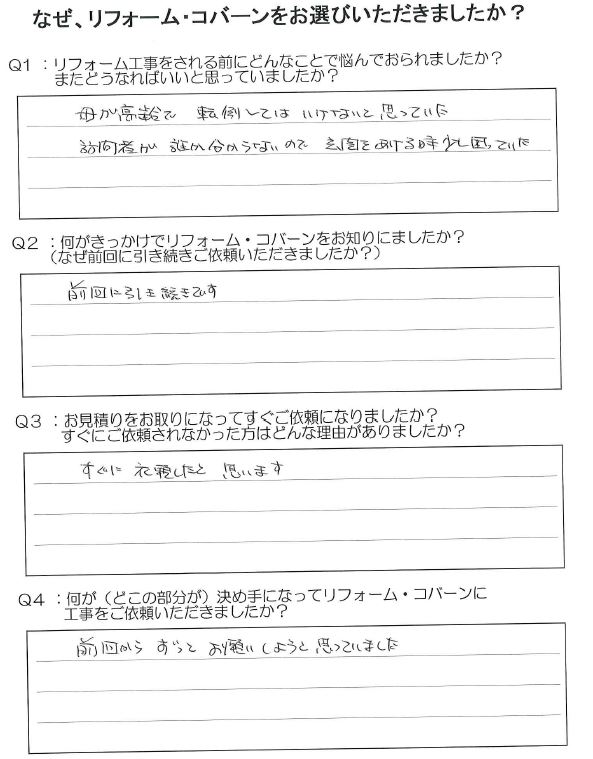 なぜ、リフォーム・コバーンをお選びいただきましたか？
Q1：リフォーム工事をされる前にどんなことで悩んでおられましたか？
またどうなればいいと思っていましたか？
母が高齢で 転倒してはいけないと思っていた
訪問者が 誰か分からないので 玄関をあける時少し困っていた
Q2：何がきっかけでリフォーム・コバーンをお知りにましたか？
（なぜ前回に引き続きご依頼いただきましたか？）
前回に引き続きです
Q3：お見積りをお取りになってすぐご依頼になりましたか？
すぐにご依頼されなかった方はどんな理由がありましたか？
すぐに 依頼したと 思います
Q4：何が（どこの部分が）決め手になってリフォーム・コバーンに
工事をご依頼いただきましたか？
前回から ずっと お願いしようと思っていました